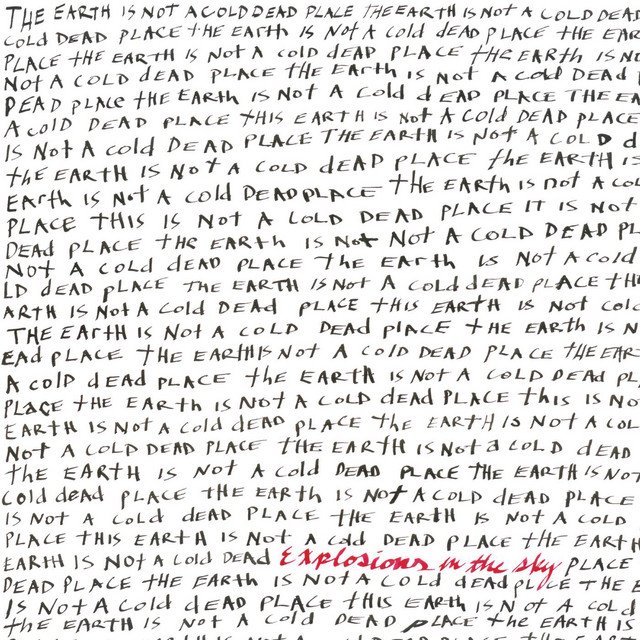 THE EARTH IS NOT A COLD DEAD PLACE THE EARTH IS NOT A COLD DEAD
COLD DEAD PLACE THE EARTH IS NOT A COLD DEAD PLACE THE EAR
PLACE THE EARTH IS NOT A COLD DEAD PLACE THE EARTH IS NO
NOT A COLD DEAD PLACE THE EARTH IS NOT A COLD DEAD
DEAD PLACE THE EARTH IS NOT A COLD DEAD PLACE THE EA
A COLD DEAD PLACE THIS EARTH IS NOT A COLD DEAD PLACE
IS NOT A COLD DEAD PLACE THE EARTH IS NOT A COLD D
THE EARTH IS NOT A COLD DEAD PLACE THE EARTH IS
EARTH IS NOT A COLD DEAD PLACE THE EARTH IS NOT A CO
PLACE THIS IS NOT A COLD DEAD PLACE IT IS NOT
DEAD PLACE THE EARTH IS NOT NOT A COLD DEAD PL
NOT A COLD DEAD PLACE THE EARTH IS NOT A COLD
LD DEAD PLACE THE EARTH IS NOT A COLD DEAD PLACE TH
ARTH IS NOT A COLD DEAD PLACE THIS EARTH IS NOT COL
THE EARTH IS NOT A COLD DEAD PLACE THE EARTH IS N
EAD PLACE THE EARTH IS NOT A COLD DEAD PLACE THE EAR
A COLD DEAD PLACE THE EARTH IS NOT A COLD DEAD PL
PLACE THE EARTH IS NOT A COLD DEAD PLACE THIS IS NO
EARTH IS NOT A COLD DEAD PLACE THE EARTH IS NOT A COL
NOT A COLD DEAD PLACE THE EARTH IS NOT A COLD DEAD
THE EARTH IS NOT A COLD DEAD PLACE THE EARTH IS NOT
COLD DEAD PLACE THE EARTH IS NOT A COLD DEAD PLACE
IS NOT A COLD DEAD PLACE THE EARTH IS NOT A COLD
PLACE THIS EARTH IS NOT A COLD DEAD PLACE THE EARTH
EARTH IS NOT A COLD DEAD Explosions in the sky PLACE
DEAD PLACE THE EARTH IS NOT A COLD DEAD PLACE THE E
IS NOT A COLD DEAD PLACE THIS EARTH IS NOT A COLD
THE EARTH IS NOT A COLD DEAD PLACE THE EARTH IS